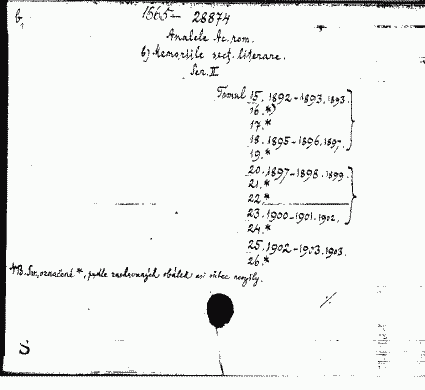 b,
1565 — 28874
Analele Ac. rom.
b) Memoriile secţ. literare.
Ser. II
Tomul 15. 1892-1893. 1893.
16.*)
17.*
18. 1895-1896. 1897.
19.*
20. 1897-1898. 1899.
21.*
22.*
23. 1900-1901. 1902.
24.*
25. 1902-1903. 1903.
26.*
NB. Sv. označené *, podle zachovaných obálek asi vůbec nevyšly.
S